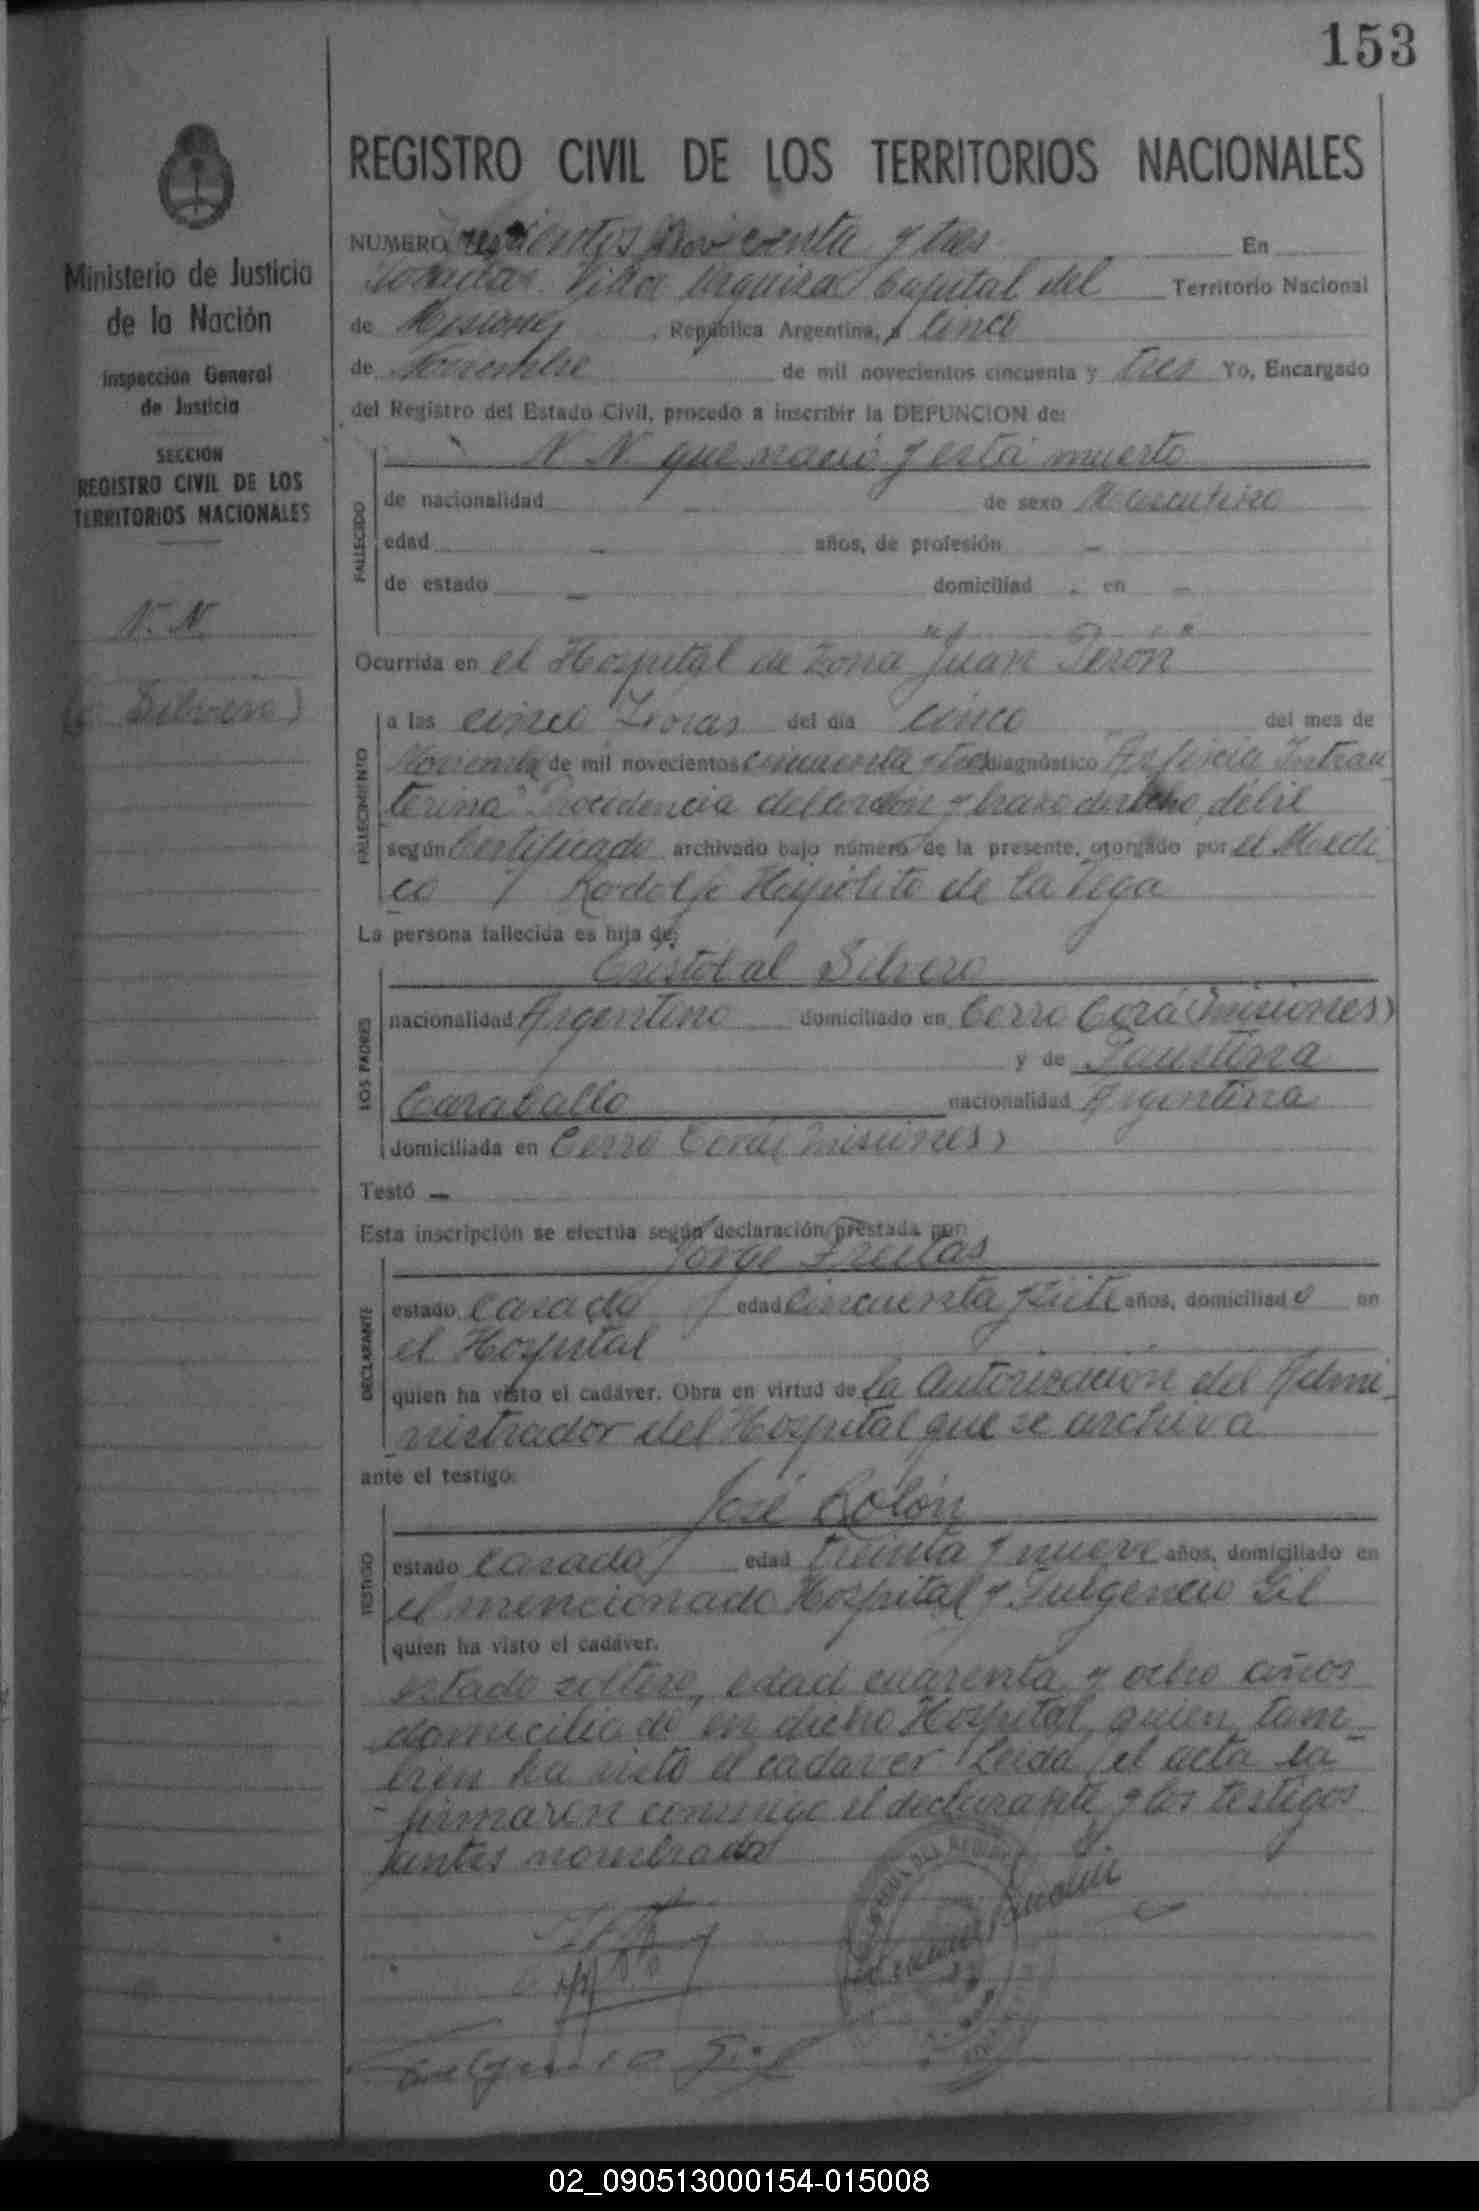 153
REGISTRO CIVIL DE LOS TERRITORIOS NACIONALES
Ministerio de Justicia
de la Nación
Inspección General
de Justicia
SECCIÓN
REGISTRO CIVIL DE LOS
TERRITORIOS NACIONALES
N. N.
(Silvero)
NUMERO trescientos noventa y tres En
Villa Urquiza Capital del Territorio Nacional
de Misiones, República Argentina, a cinco
de Noviembre de mil novecientos cincuenta y tres Yo, Encargado
del Registro del Estado Civil, procedo a inscribir la DEFUNCION de:
FALLECIDO
N N que nació y está muerto
de nacionalidad - de sexo Masculino
edad - años, de profesión -
de estado - domiciliad . en -
Ocurrida en el Hospital de Zona "Juan Perón"
FALLECIMIENTO
a las cinco horas del día cinco del mes de
Noviembre de mil novecientos cincuenta y tres diagnóstico Asfixia Intrau
terina Procidencia del cordón y brazo derecho, débil
según Certificado archivado bajo número de la presente, otorgado por el Médi
co Rodolfo Hipólito de la Vega
La persona fallecida es hija de:
LOS PADRES
Cristobal Silvero
nacionalidad Argentino domiciliado en Cerro Corá (Misiones)
y de Faustina
Caraballo nacionalidad Argentina
domiciliada en Cerro Corá (Misiones)
Testó -
Esta inscripción se efectúa según declaración prestada por:
DECLARANTE
Jorge Freitas
estado casado edad cincuenta y siete años, domiciliado en
el Hospital
quien ha visto el cadáver. Obra en virtud de la Autorización del Admi-
nistrador del Hospital que se archiva
ante el testigo:
TESTIGO
José Colón
estado casado edad treinta y nueve años, domiciliado en
el mencionado Hospital y Fulgencio Gil
quien ha visto el cadáver.
estado soltero, edad cuarenta y ocho años
domiciliado en dicho Hospital, quien tam-
bien ha visto el cadaver Leida el acta la
firmaron conmigo el declarante y los testigos
antes nombrado
Fulgencio Gil
02_090513000154-015008